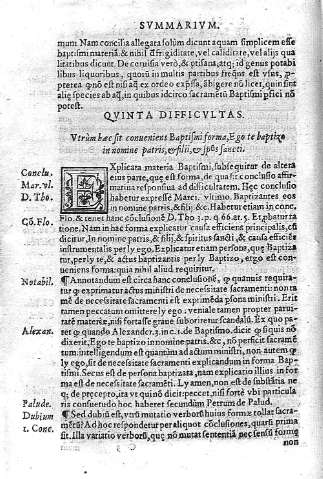 SVMMARIVM.
mum: Nam concilia allegata solùm dicunt aquam simplicem esse
baptismi materiã & nihil d̃ frigiditate, vel caliditate, vel alijs qua
litatibus dicunt. De ceruisia verò, & ptisana, atq; id genus potabi
libus liquoribus, quorũ in multis partibus freq̃ns est vsus,
terea nõ est nisi aq̃ ex ordeo expssa, abigere nõ licet, quin sint
aliæ species ab aq̃, in quibus idcirco sacramẽtũ Baptismi pfici nõ
potest.
QVINTA DIFFICVLTAS.
Vtrũm hæc sit conueniens Baptismi forma, Ego te baptizo
in nomine patris, & filij, & spũs sancti.
Conclu.
Mar. vl.
D. Tho.
Cõ. Flo.
EXplicata materia Baptismi, subsequitur de altera
eius parte, quæ est forma, de qua sit conclusio affir-
matiua responsiua ad difficultatem. Hęc conclusio
habetur expresse Marci. vltimo. Baptizantes eos
in nomine patris, & filij; &c. Habetur etiam in conc.
Flo. & tenet hanc cõclusionẽ D. Tho 3. p. q. 66. ar. 5. Et
tione. Nam in hac forma explicatur causa efficiens principalis, cũ
dicitur, In nomine patris, & filij, & spiritus sancti, & causa efficiẽs
instrumentalis per ly ego. Explicatur etiam persona, quæ Baptiza
tur, per ly te, & actus baptizantis per ly Baptizo, ergo est con-
ueniens forma: quia nihil aliud requiritur.
Notabil.
¶ Annotandum est circa hanc conclusionẽ, quamuis requira-
tur exprimatur actus ministri de necessitate sacramenti: non ta
mẽ de necessitate sacramenti est exprimẽda psona ministri. Erit
tamen peccatum omittere ly ego. veniale tamen propter parui-
tatẽ materiæ, nisi fortasse graue suboriretur scandalũ. Ex quo pa-
Alexan.
tet quando Alexander. 3. in c. 1. de Baptismo. dicit si quis nõ
dixerit, Ego te baptizo in nomine patris, &c., nõ perficit sacramẽ
tum: intelligendum est quantũm ad actum ministri, non autem
ly ego, sit de necessitate sacramenti explicandum in forma Bap-
tismi. Secus est de persona baptizata, nam explicatio illius in for
ma est de necessitate sacramẽti. Ly amen, non est de substãtia ne
q; de præcepto, ita vt quino dicit: peccet, nisi fortè vbi particula
Palude.
ris consuetudo hoc haberet secundùm Petrum de Palud.
Dubium
¶ Sed dubiũ est, vtrũ mutatio verborũ huius formæ tollat sacra-
1. Conc.
mẽtũ? Ad hoc respondetur per aliquot cõclusiones, quarũ prima
sit. Illa variatio verborũ, quę nõ mutat sententiã nec sensũ formę
non